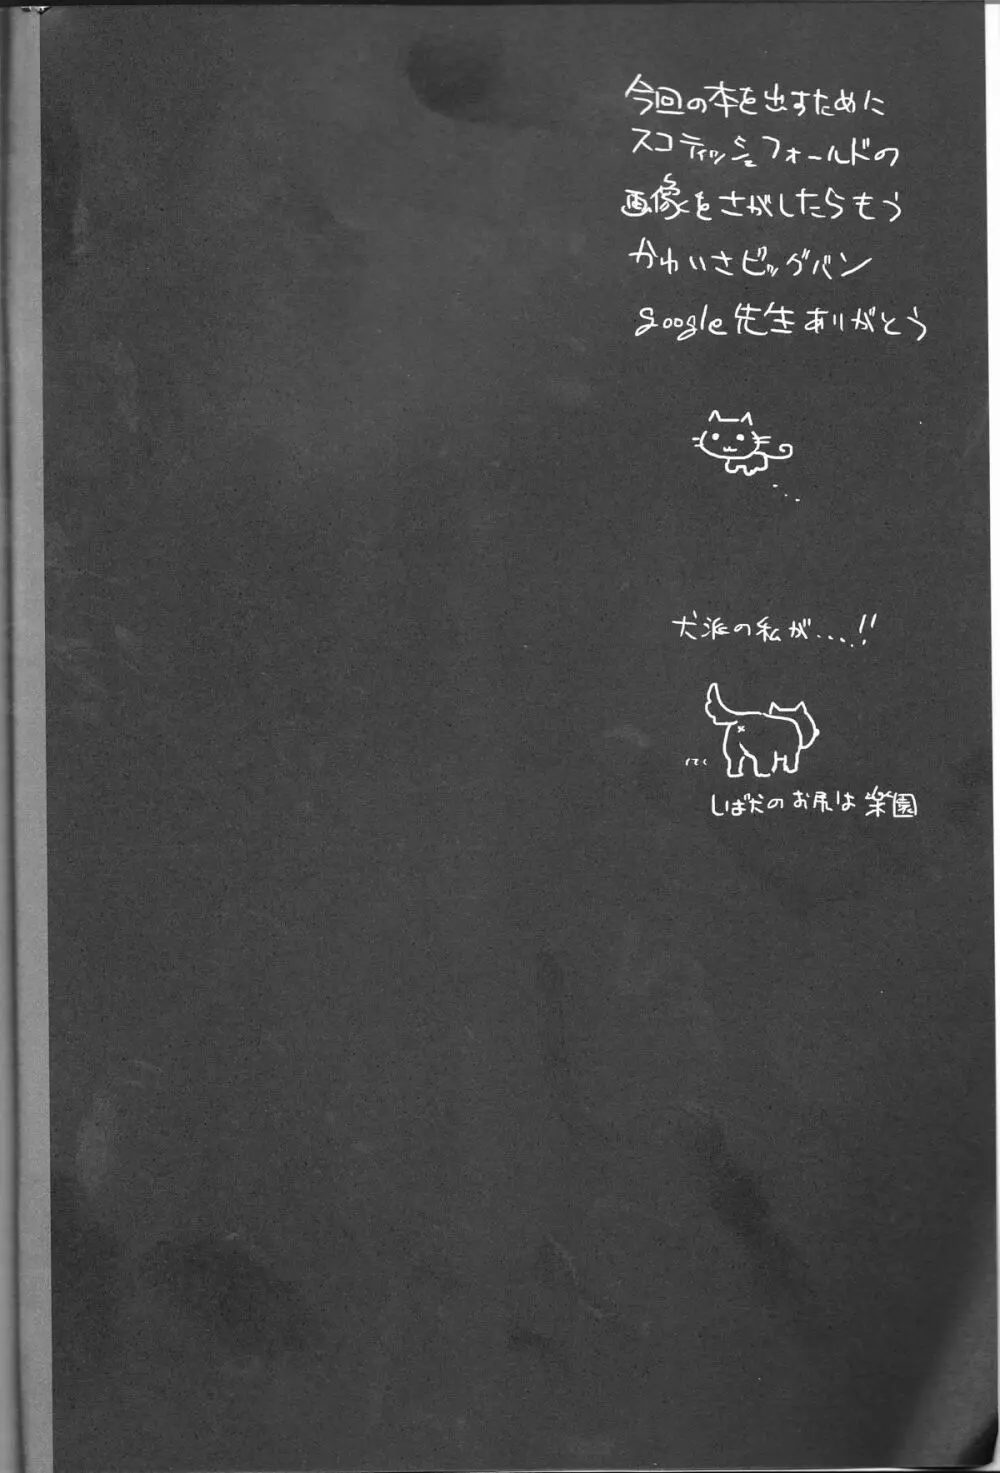 今回の本を出すために
スコティッシュフォールドの
画像をさがしたらもう
かわいさビッグバン
google先生ありがとう
犬派の私が....!!
しば犬のお尻は楽園